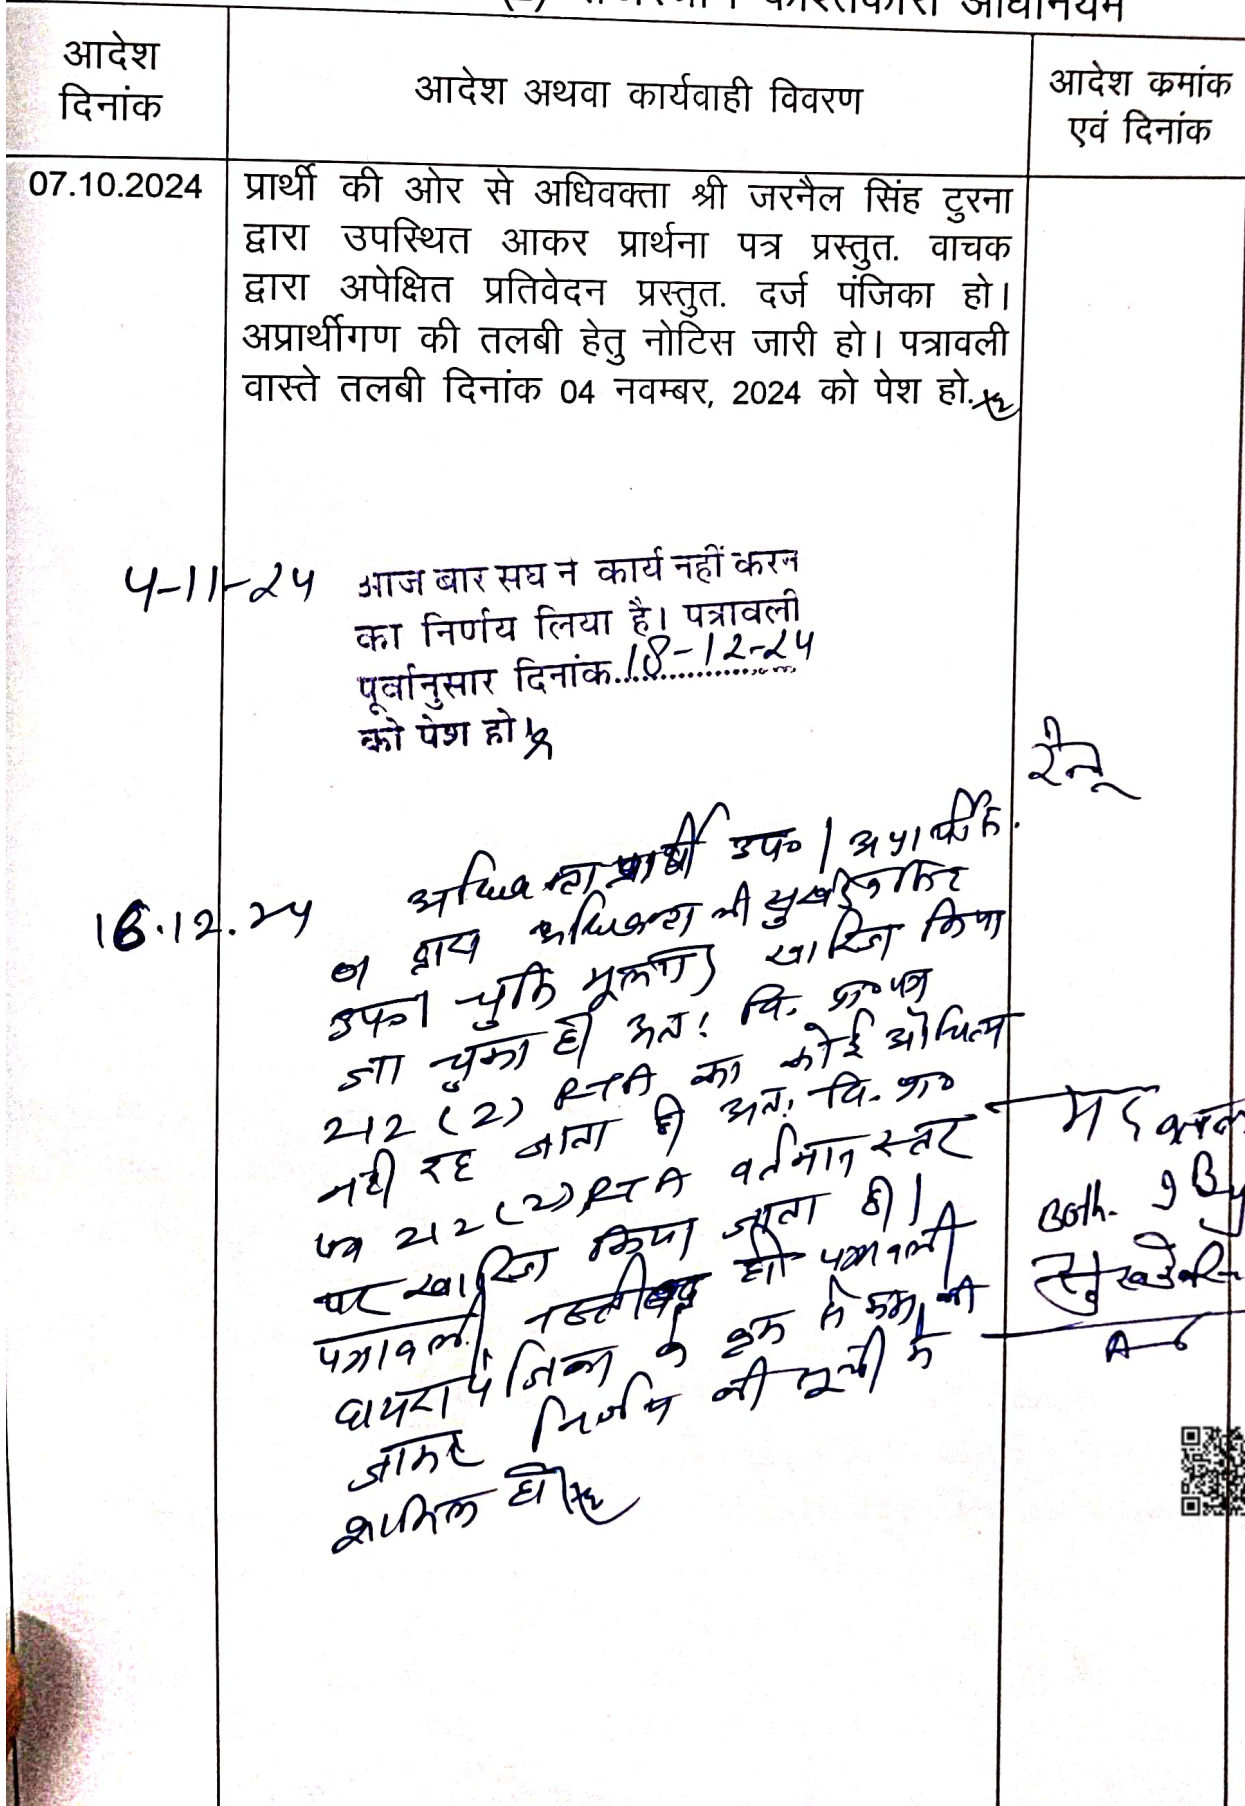 (2) राजस्थान काश्तकारी अधिनियम
आदेश दिनांक
आदेश अथवा कार्यवाही विवरण
आदेश कमांक एवं दिनांक
07.10.2024
प्रार्थी की ओर से अधिवक्ता श्री जरनैल सिंह टुरना
द्वारा उपस्थित आकर प्रार्थना पत्र प्रस्तुत. वाचक
द्वारा अपेक्षित प्रतिवेदन प्रस्तुत. दर्ज पंजिका हो।
अप्रार्थीगण की तलबी हेतु नोटिस जारी हो। पत्रावली
वास्ते तलबी दिनांक 04 नवम्बर, 2024 को पेश हो.
4-11-24
आज बार सघ न कार्य नहीं करन
का निर्णय लिया है। पत्रावली
पूर्वानुसार दिनांक 18-12-24
को पेश हो।
रेनू
18.12.24
अधिवक्ता प्रार्थी उप०। अप्रार्थी सं.
द्वारा अधिवक्ता श्री
उप०। चुकि खारिज किया
जा चुका है। अत: वि. प्रा० पत्र
212 (2) RTA का कोई औचित्य
नही रह जाता है। अत: वि. प्रा०
पत्र 212 (2) RTA वर्तमान स्तर
पर खारिज किया जाता है।
पत्रावली हो पत्रावली
दायरा पंजिका के क्रम से कम की
जाकर निर्णय की सूची मे
शामिल हो।